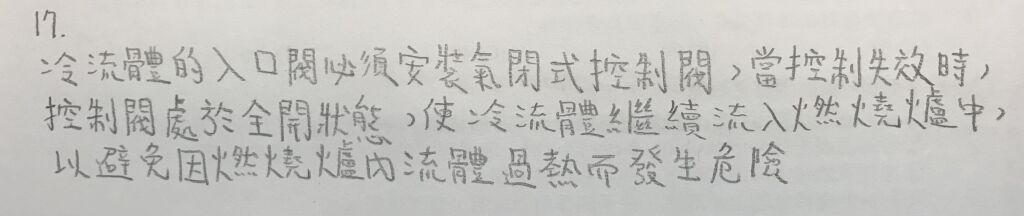 17.
冷流體的入口閥必須安裝氣閉式控制閥,當控制失效時,
控制閥處於全開狀態,使冷流體繼續流入燃燒爐中,
以避免因燃燒爐內流體過熱而發生危險